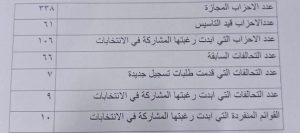 عدد الاحزاب المجازة ٣٣٨
عدد الاحزاب قيد التاسيس ٦١
عدد الاحزاب التي ابدت رغبتها المشاركة في الانتخابات ١٠٦
عدد التحالفات السابقة ٦٦
عدد التحالفات التي قدمت طلبات تسجيل جديدة ٧
عدد التحالفات التي ابدت رغبتها المشاركة في الانتخابات ٩
القوائم المنفردة التي ابدت رغبتها المشاركة في الانتخابات ١٠